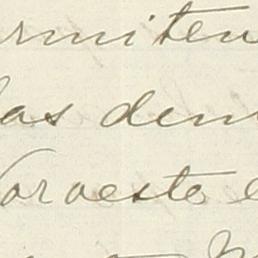 rmiten
las dem
Noroeste e